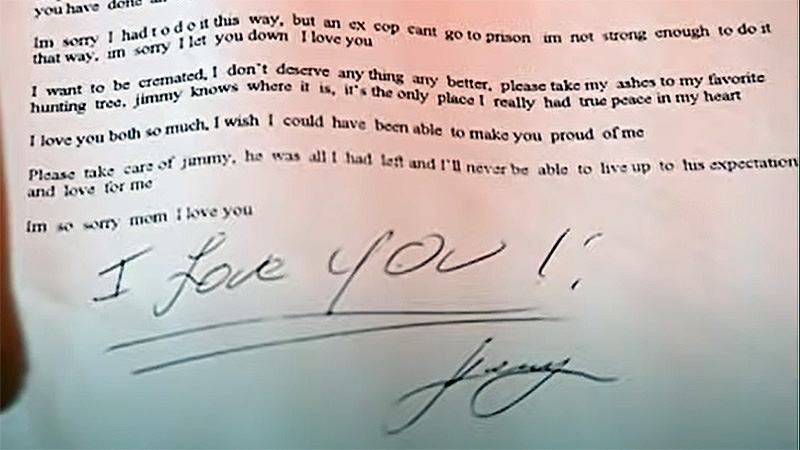 you have done
Im sorry I had to do it this way, but an ex cop cant go to prison im not strong enough to do it
that way, im sorry I let you down I love you
I want to be cremated, I don't deserve any thing any better, please take my ashes to my favorite
hunting tree, jimmy knows where it is, it's the only place I really had true peace in my heart
I love you both so much, I wish I could have been able to make you proud of me
Please take care of jimmy, he was all I had left and I'll never be able to live up to his expectation
and love for me
Im so sorry mom I love you
I Love YOU !!